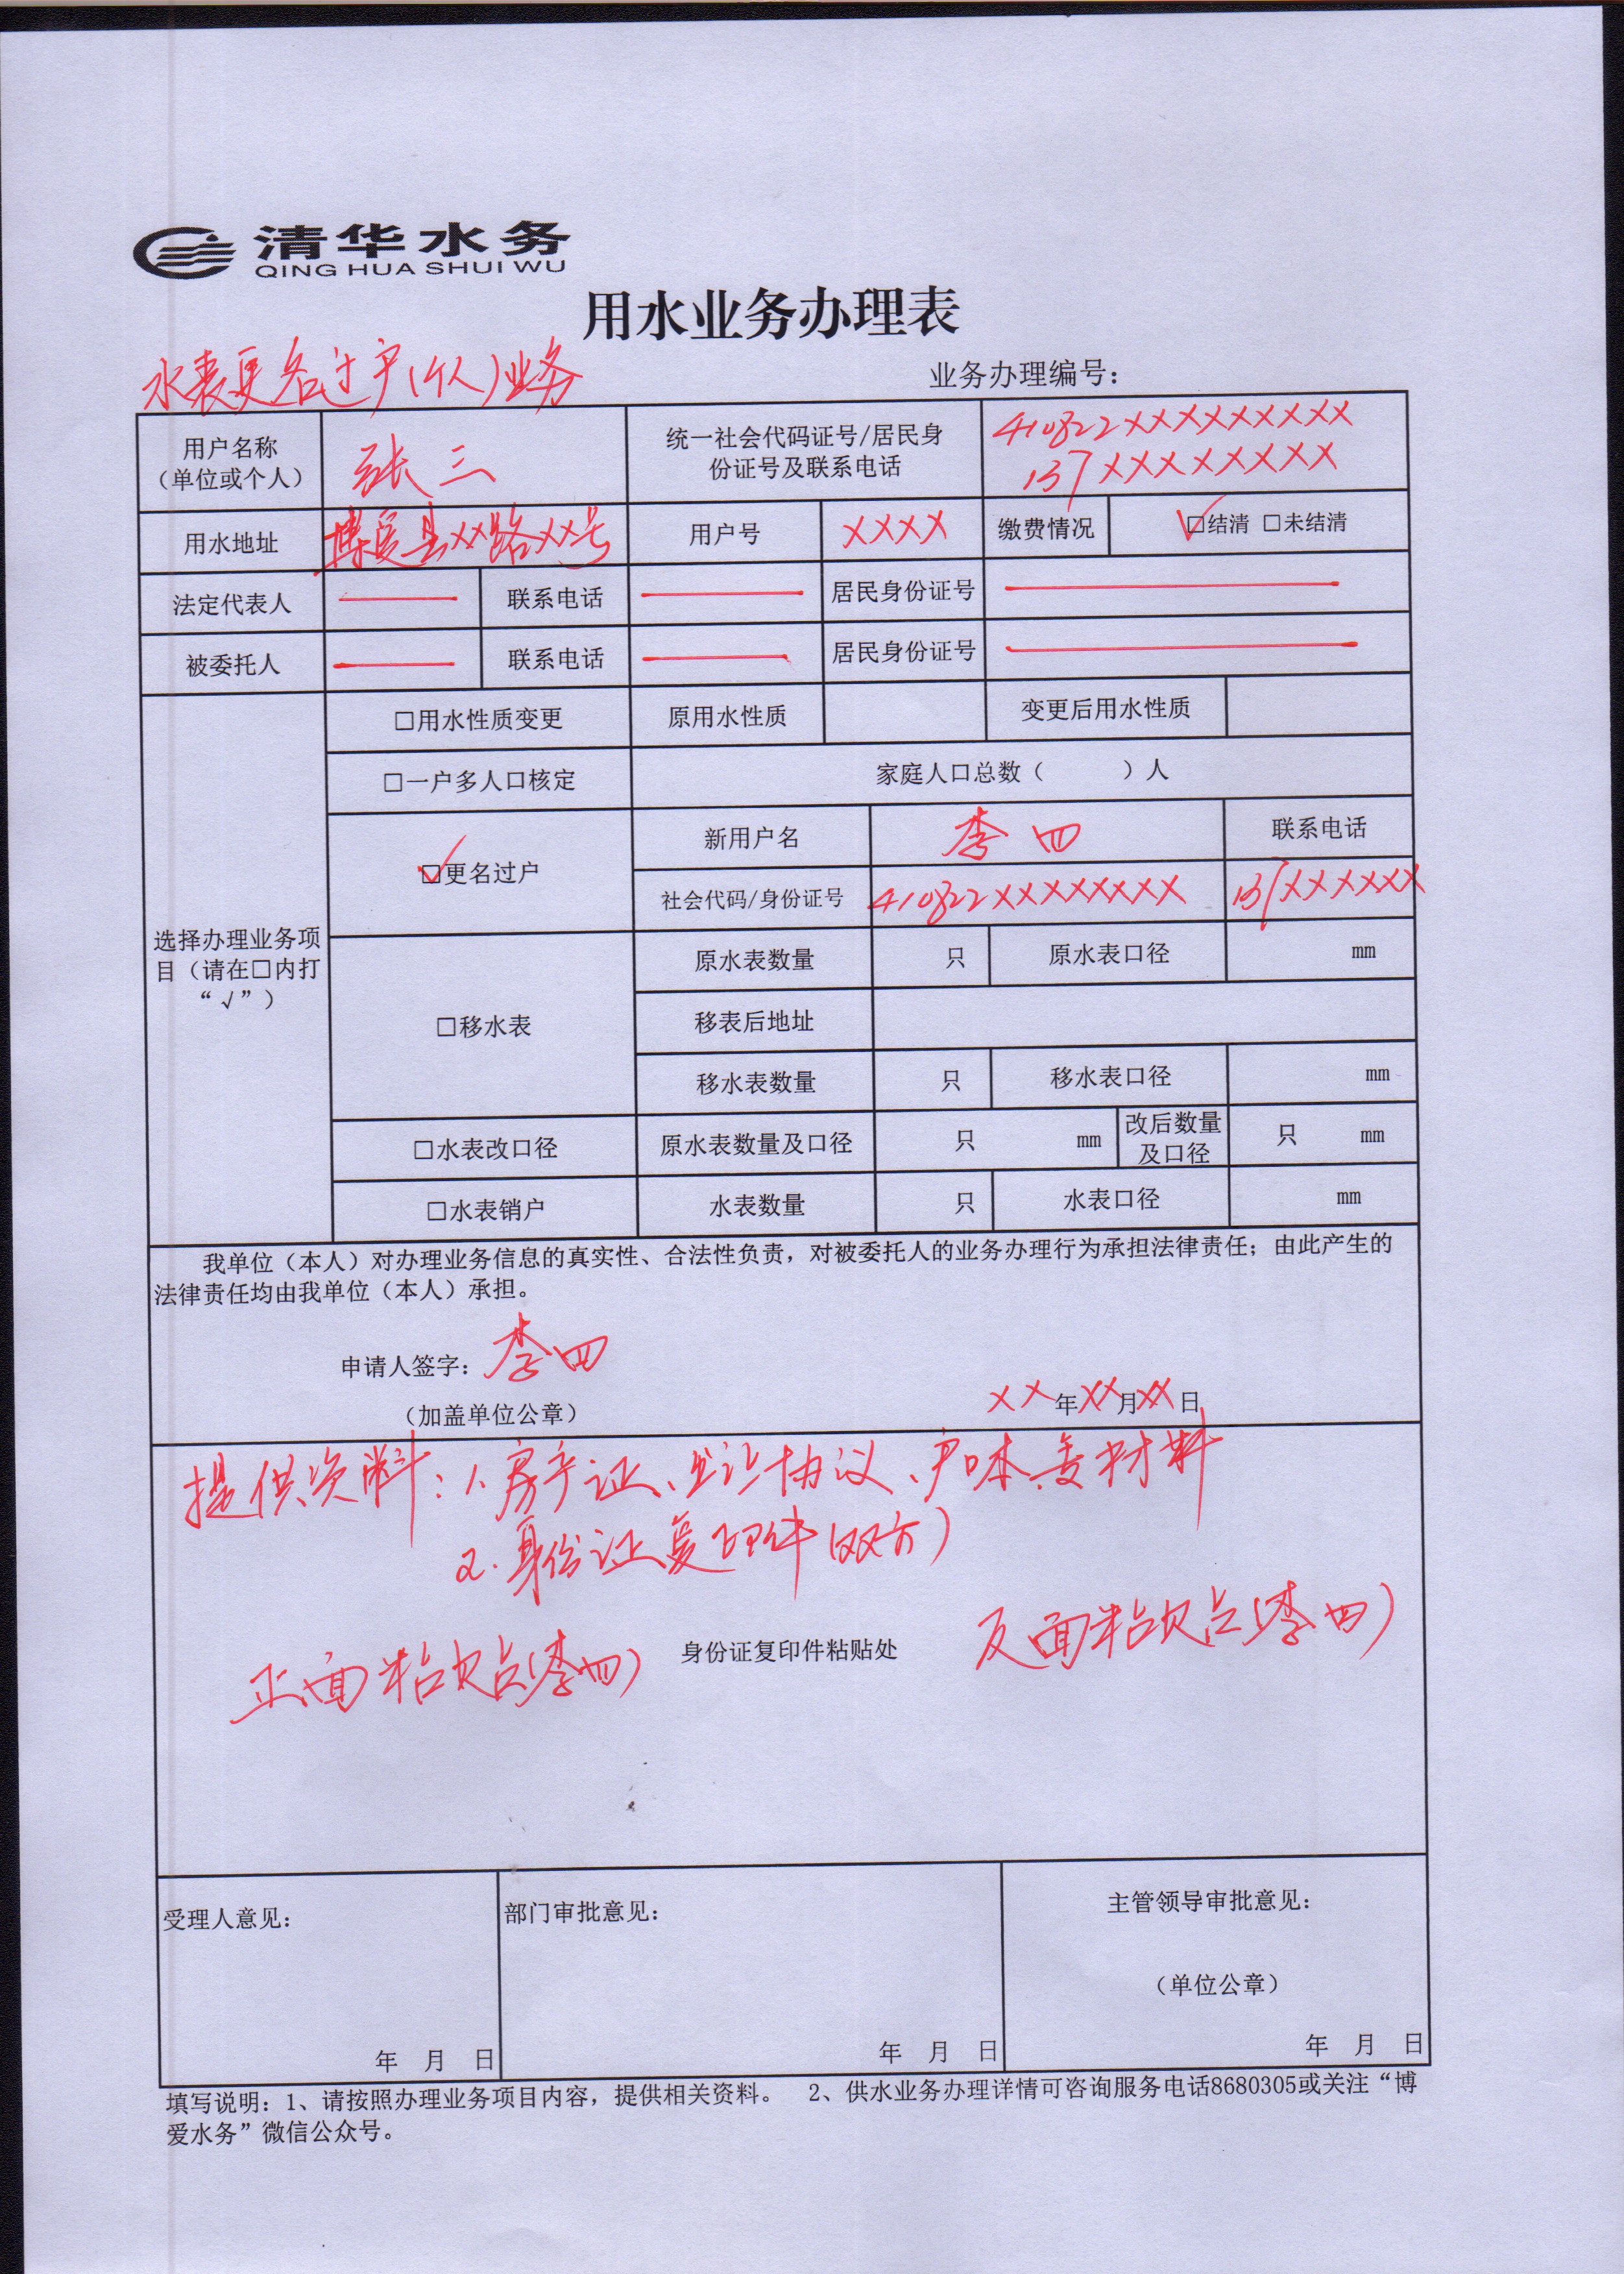 清华水务
QING HUA SHUI WU
用水业务办理表
水表更名过户(个人)业务
业务办理编号：
用户名称
（单位或个人）
张三
统一社会代码证号/居民身
份证号及联系电话
410822XXXXXXXXX
137XXXXXXXX
用水地址
博爱县XX路XX号
用户号
XXXX
缴费情况
☑结清 □未结清
法定代表人
联系电话
居民身份证号
被委托人
联系电话
居民身份证号
选择办理业务项
目（请在□内打
“√”）
□用水性质变更
原用水性质
变更后用水性质
□一户多人口核定
家庭人口总数（ ）人
☑更名过户
新用户名
李四
联系电话
社会代码/身份证号
410822XXXXXXXX
137XXXXXX
□移水表
原水表数量
只
原水表口径
mm
移表后地址
移水表数量
只
移水表口径
mm
□水表改口径
原水表数量及口径
只 mm
改后数量
及口径
只 mm
□水表销户
水表数量
只
水表口径
mm
我单位（本人）对办理业务信息的真实性、合法性负责，对被委托人的业务办理行为承担法律责任；由此产生的
法律责任均由我单位（本人）承担。
申请人签字：李四
（加盖单位公章）
XX年XX月XX日
提供资料：1.房产证、协议、户口本、材料
2.身份证复印件(双方)
正面粘贴点(李四)
身份证复印件粘贴处
反面粘贴点(李四)
受理人意见：
年 月 日
部门审批意见：
年 月 日
主管领导审批意见：
（单位公章）
年 月 日
填写说明：1、请按照办理业务项目内容，提供相关资料。 2、供水业务办理详情可咨询服务电话8680305或关注“博
爱水务”微信公众号。